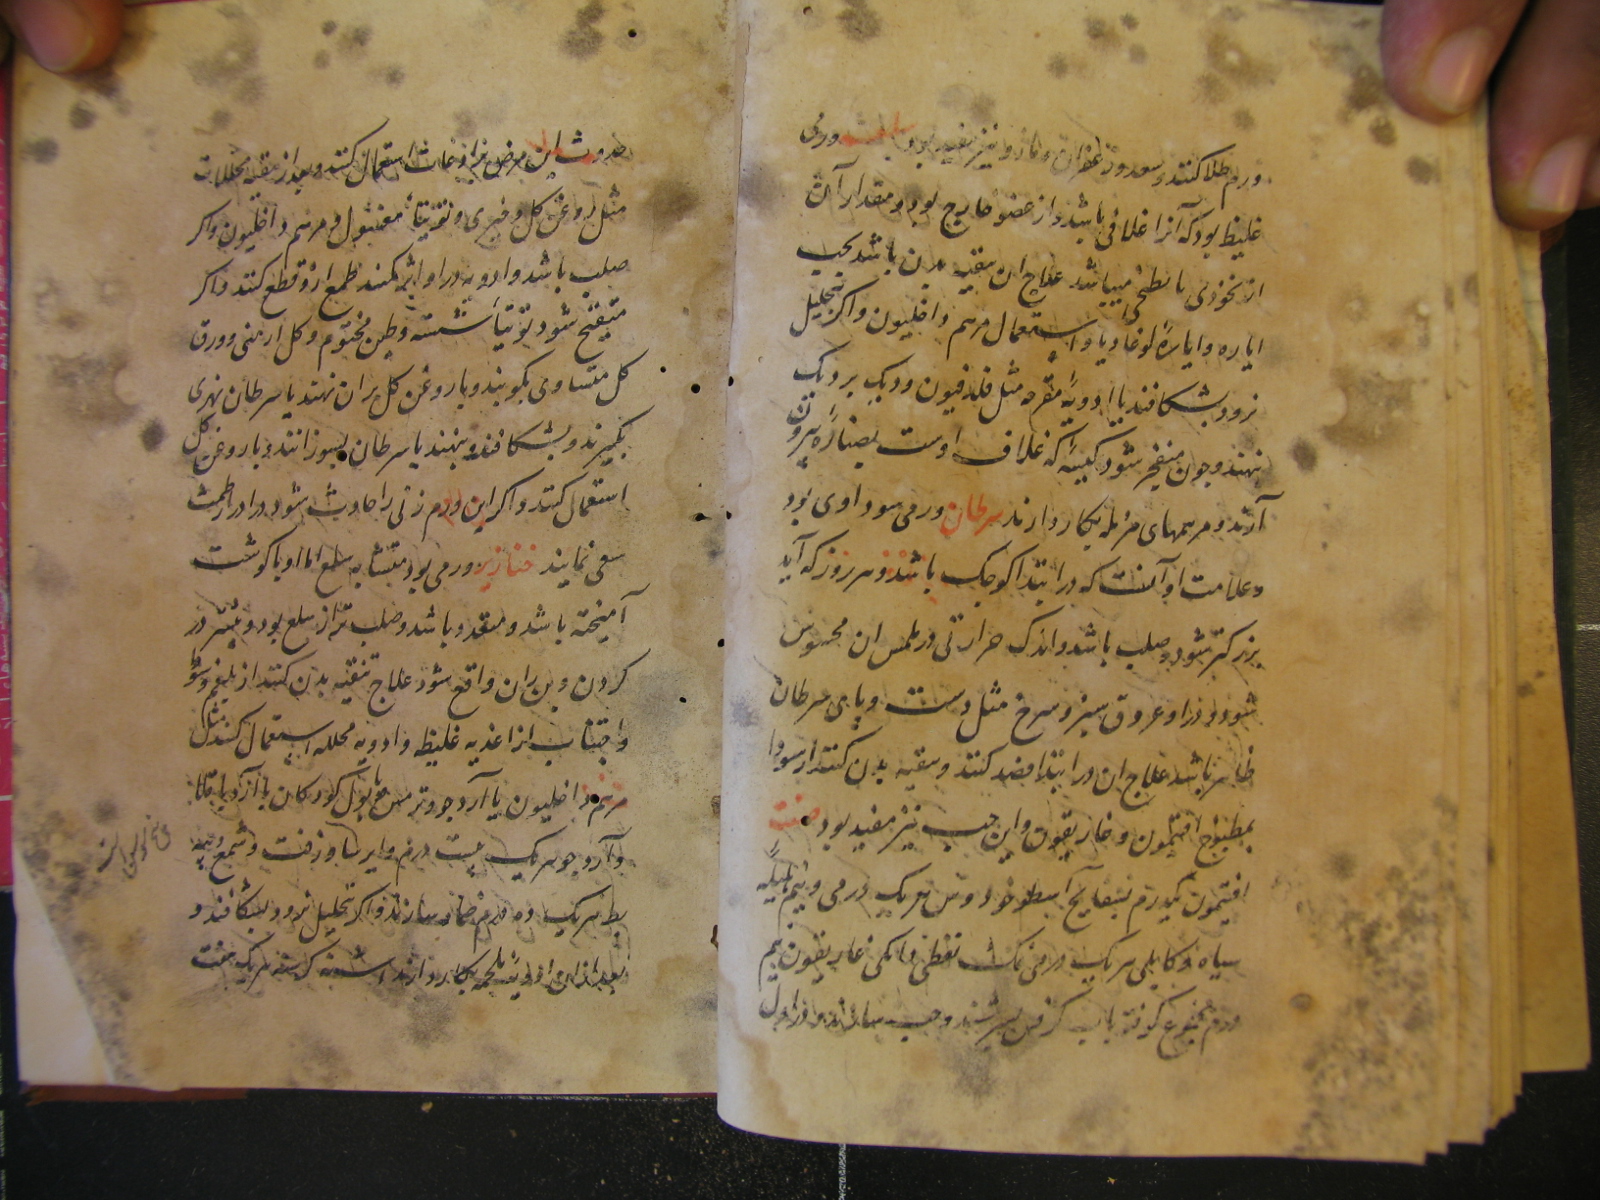 ورم طلا کنند و سعد و زعفران و مازو نیز مفید بود سلعه ورمی
غلیظ بود که آنرا غلافی باشد و از عضو خارج بود و مقدار آن
از نخودی تا بطیخی میباشد علاج ان تنقیه بدن باشد بحب
ایاره و ایارهٔ لوغادیا و استعمال مرهم داخلیون و اکر بتحلیل
نرود بشکافند یا ادویهٔ مقرحه مثل فلدفیون و دیک بر دیک
نهند و چون منفجر شود کیسهٔ که غلاف اوست بصناره بیرون
آرند و مرهمهای مدمله بکار دارند سرطان ورمی سوداوی بود
و علامت او آنست که در ابتدا کوچک باشد و هر روز که آید
بزرکتر شود و صلب باشد و اندک حرارتی در ملمس ان محسوس
شود و در او عروق سبز و سرخ مثل دست و پای سرطان
ظاهر باشد علاج ان در ابتدا فصد کنند و تنقیه بدن کنند از سودا
بمطبوخ افتیمون و غاریقون و این حب نیز مفید بود صنت
افتیمون یکدرم بسفایج اسطوخودوس هریک درمی و نیم هلیله
سیاه و کابلی هریک درمی نمک نفطی دانکی غاریقون نیم
درم مجموع کوفته باب کرفس بسرشند و حب سازند و در اول
حدوث این مرض بزادغات استعمال کنند و بعد از تنقیه محللات
مثل روغن کل و خیری و توتیاء مغسول و مرهم داخلیون و اکر
صلب باشد و ادویه در او اثر نکند طمع ازو قطع کنند و اکر
متقیح شود توتیاء شسته و طین مختوم و کل ارمنی و ورق
کل متساوی بکوبند و با روغن کل بر ان نهند یا سرطان نهری
بکیرند و بشکافند و بنهند یا سرطان بسوزانند و با روغن کل
استعمال کنند و اکر این ورم زنی را حادث شود در ادرار طمث
سعی نمایند خنازیر ورمی بود متشابه سلع اما او با کوشت
آمیخته باشد و منعقد باشد و صلب تر از سلع بود و بیشتر در
کردن و بن ران واقع شود علاج تنقیه بدن کنند از بلغم و سودا
و اجتناب از اغذیه غلیظه و ادویه محلله استعمال کنند مثل
مرهم داخلیون یا آرد جو و ترمس با بول کودکان یا آرد باقلا
و آرد جو هریک بیست درم و ایرسا و زفت و شمع و پیه
بط هریک ده درم ضماد سازند و اکر بتحلیل نرود بشکافند و
بعد از ان ادویهٔ ملحمه بکار دارند اشنه کرسنه هریک هفت